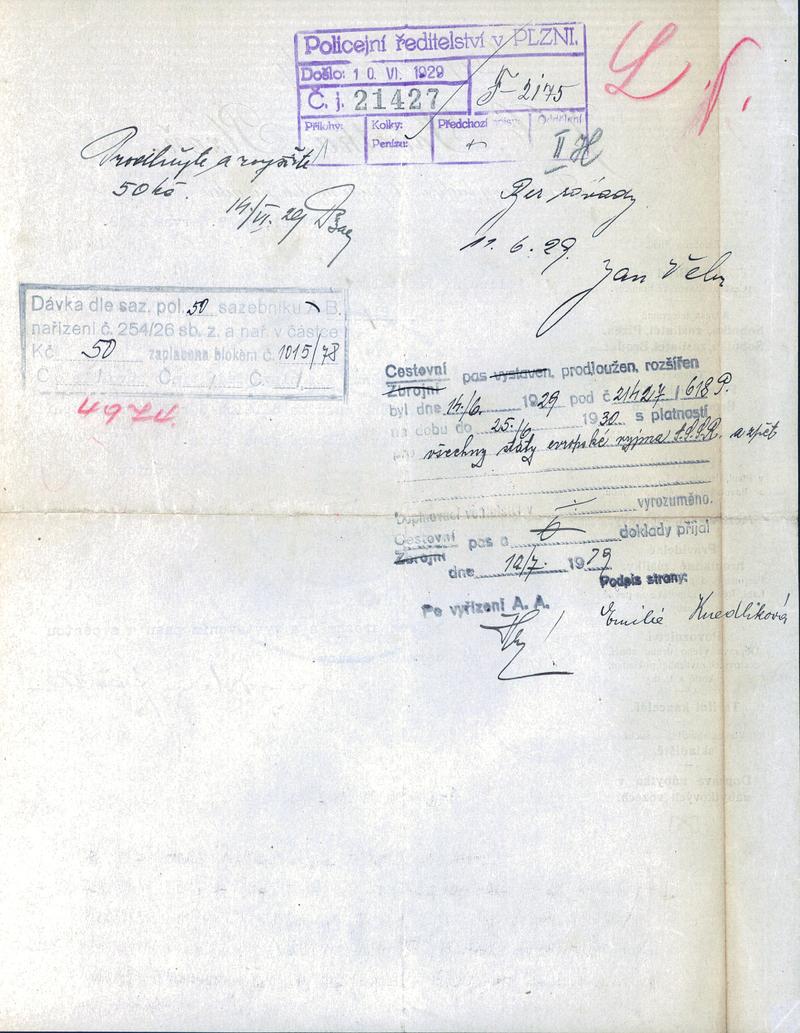 Policejní ředitelství v PLZNI.
Došlo: 10. VI. 1929
Č. j. 21427
F-2175
Přílohy:
Kolky:
Penízu:
Předchozí
Oddělení
II H
Prodlužte a rozšiřte
50 Kč.
14/VI. 29
Bez závady
11. 6. 29.
Jan
Dávka dle saz. pol. 50 sazebníku A B.
nařízení č. 254/26 sb. z. a nař. v částce
Kč 50 zaplacena blokem č. 1015/78
Č Č. Č.
Cestovní
Zbrojní pas vystaven, prodloužen, rozšířen
byl dne 14./6. 1929 pod č 21427/618 P.
na dobu do 25./6. 1930 s platností
všechny státy evropské vyjma S.S.S.R. a zpět
v vyrozuměno.
Cestovní
Zbrojní pas a 6 doklady přijal
dne 12/7. 1929
Podpis strany:
Po vyřízení A. A.
Emilie Knedlíková